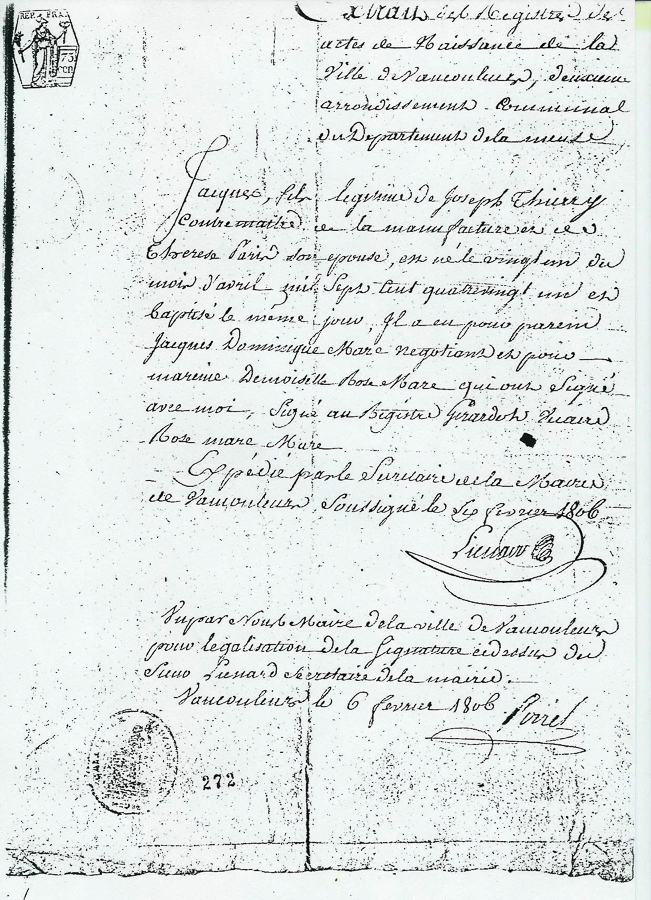 REP. FRA.
75 cen
Extrait des Registres des
actes de Naissance de la
Ville de Vaucouleurs, deuxieme
arrondissement Communal
du Departement de la meuse
Jacques, fils legitime de Joseph Thierry
contremaitre de la manufacture et de
Therese Paris son epouse, est né le vingt un du
mois d'avril mil Sept Cent quatrevingt un et
baptisé le même jour, Il a eu pour parein
Jacques Dominique Mare negotiant et pour
mareine Demoiselle Rose Mare qui ont Signé
avec moi, Signé au Registre Girardot Vicaire
Rose mare Mare
Expédié par le Secretaire de la Mairie
de Vaucouleurs, Soussigné le six fevrier 1806
Lienard
Vu par Nous Maire de la ville de Vaucouleurs
pour legalisation de la Signature cidessus du
Sieur Lienard Secretaire de la mairie.
Vaucouleurs le 6 fevrier 1806 Poirel
272